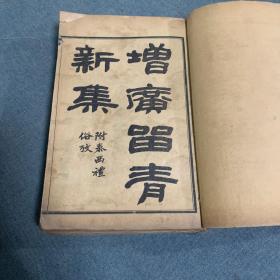 增廣留青
新集
附泰西禮
俗攷